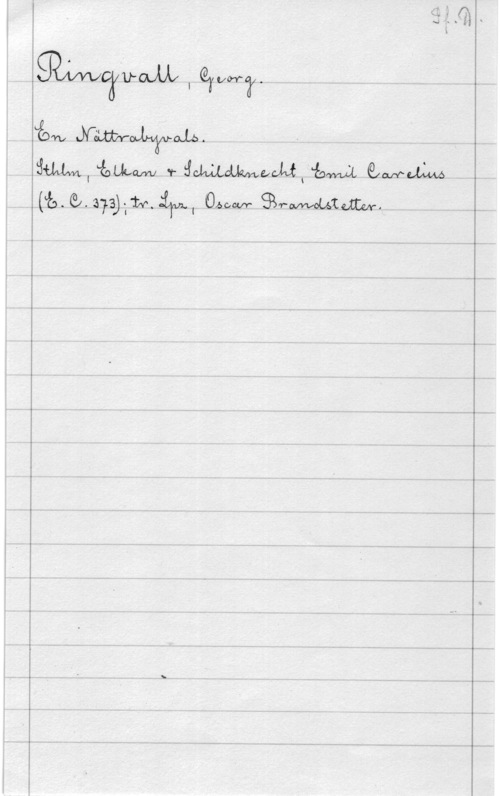 Pf. D.
Ringvall, Georg.
En Nättrabyvals.
Sthlm, Elkan & Schildknecht, Emil Carelius
(E. C. 373); tr. Lpz, Oscar Brandstetter.